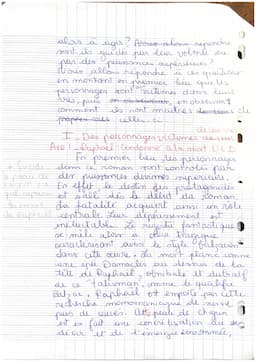 alors à agir? Nous allons répondre
sont ils guidés par leur volonté ou
par des puissances supérieures?
Nous allons répondre à ces questions
en montrant en premier lieu que les
personnages sont victimes dans leurs
vies, puis en observant
comment ils sont maîtres
celles-ci
I - Des personnages victimes
Axe 1: Raphaël condamné à la mort D.L.D
En premier lieu, les personnages
dans ce roman sont contrôlés par
des puissances divines supérieures.
En effet, le destin des protagonistes
est scellé dès le début du roman.
La fatalité acquiert ainsi un rôle
central. Leur dépérissement est
inéluctable. Le registre fantastique
se mêle alors à celui tragique
caractérisant ainsi le style balzacien
dans cette œuvre. La mort plane comme
une épée Damoclès au dessus de la
tête de Raphaël,
de ce talisman, comme le qualifie
Balzac. Raphaël est emporté par cette
recherche
puis de succès. Cette peau de chagrin
est en fait une concrétisation du
désir et de l'énergie consommée,